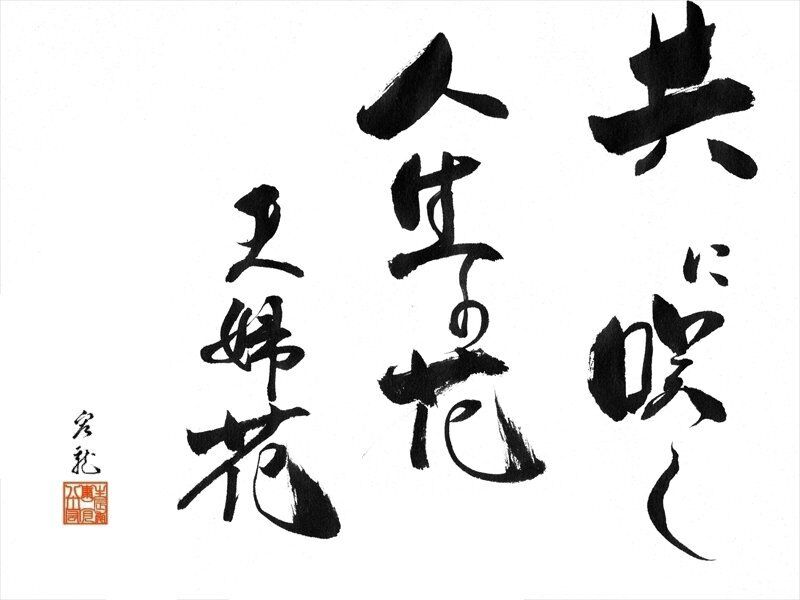 共に咲く
人生の花
夫婦花